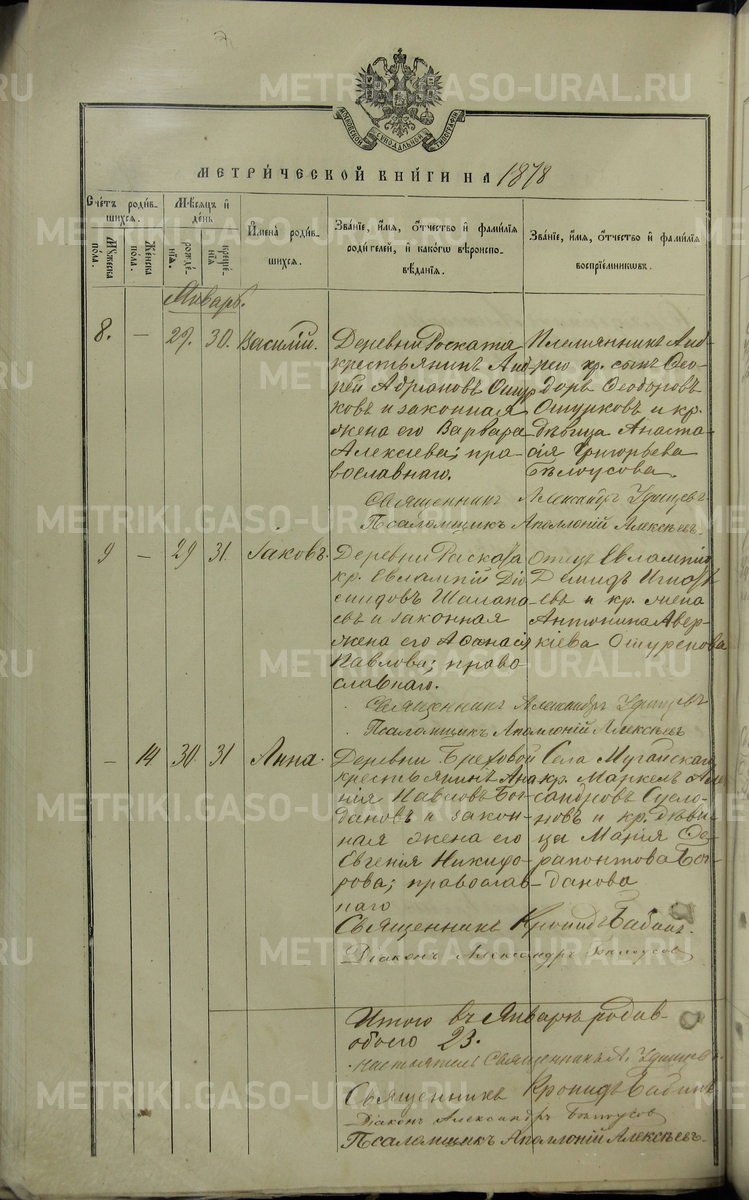 МОСКОВСКОЙ СѴНОДАЛЬНОЙ ТИПОГРАФІИ
МЕТРИ́ЧЕСКОЙ КНИ́ГИ НА 1878
Сче́тъ роди́вшихся.
Му́жеска по́ла.
Же́нска по́ла.
М́ѣсяцъ и҆ де́нь
рожде́нїѧ.
креще́нїѧ
И҆мена̀ роди́вшихся.
Зва́нїе, и҆́мѧ, ѻ҆́тчество и҆ фамилїѧ роди́телей, и҆ како́гѡ вѣроисповѣ́данїѧ.
Зва́нїе, и҆́мѧ, ѻ҆́тчество и҆ фамилїѧ воспрїе́мникѡвъ.
Январь.
8. — 29. 30. Василій.
Деревни Роскатя
крестьянинъ Анд
рей Адріановъ Ошур
ковъ и законная
жена его Варвара
Алексіева; пра-
вославнаго.
Племянникъ Анд
рею кр. сынъ Ѳео-
доръ Ѳеодоровъ
Ошурковъ и кр.
дѣвица Анаста-
сія Григорьева
Бѣлоусова.
Священникъ Александръ Удинцевъ
Псаломщикъ Аполлоній Алексѣевъ
9 — 29 31. Іаковъ.
Деревни Раската
кр. Евлампій Діо
мидовъ Шалапа
евъ и законная
жена его Аѳанасія
Павлова; право
славнаго.
отецъ Евлампію
Демидъ
евъ и кр. жена
Антонина Авер-
кіева Ошуркова
Священникъ Александръ Удинцевъ
Псаломщикъ Аполлоній Алексѣевъ
— 14 30 31 Анна.
Деревни Бреховой
крестьянинъ Ана
нія Павловъ Бог-
дановъ и закон-
ная жена его
Евгенія Никифо-
рова; православ-
наго
Села Мугайскаго
кр. Маркелъ Але
сандровъ Сусло-
новъ и кр. дѣви-
ца Марія Ѳе-
рапонтова Бог-
данова
Священникъ Кронидъ Бабинъ
Діаконъ Александръ Бѣлоусов
Итого въ Январѣ родив-
обоего 23.
Настоятель Священникъ А. Удинцевъ
Священникъ Кронидъ Бабинъ
Діаконъ Александръ Бѣлоусов
Псаломщикъ Аполлоній Алексѣевъ
METRIKI.GASO-URAL.RU